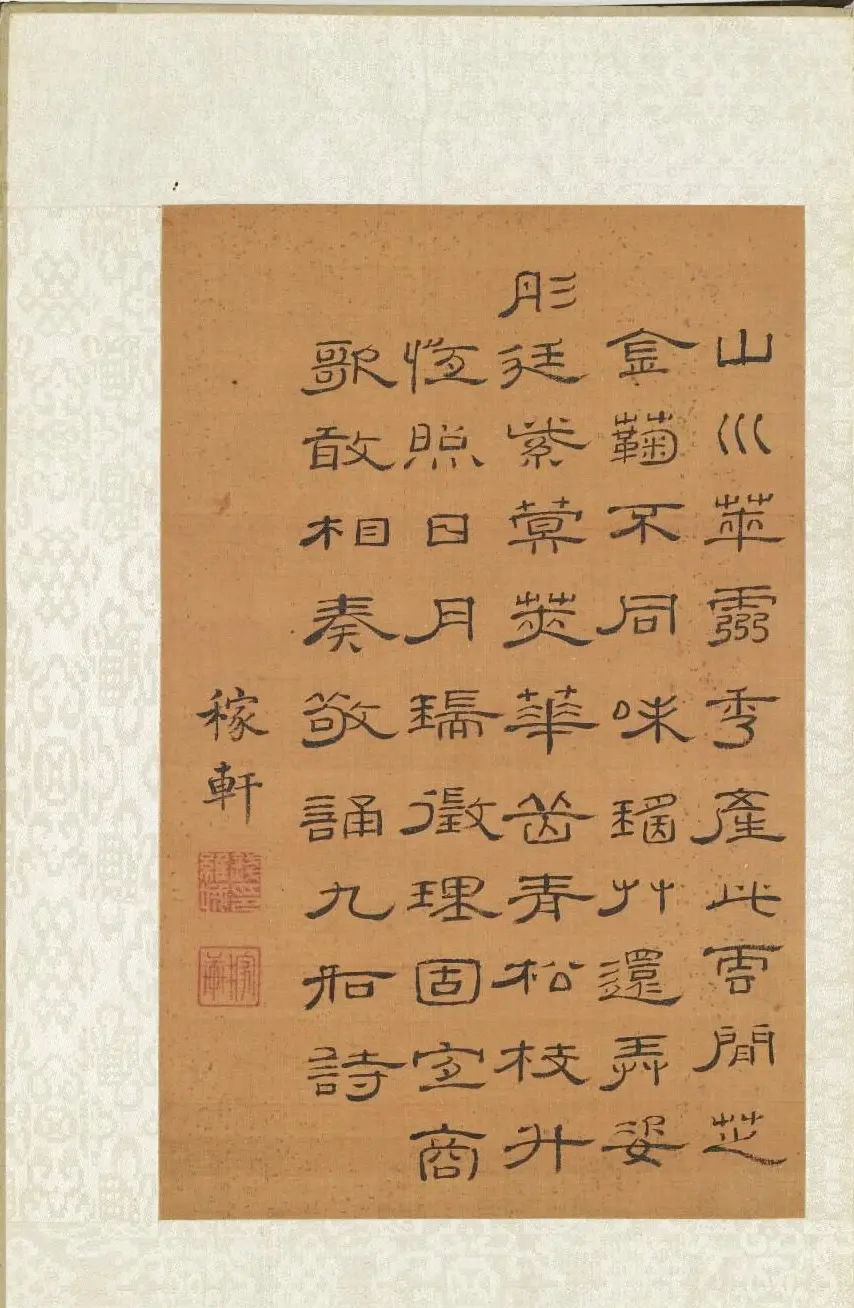 山川萃靈秀產此雲間芝
金鞠不同味瑤艸還弄姿
彤廷紫蓂莢華茁青松枝升
恆照日月瑞徵理固宜商
歌敢相奏敬誦九如詩
稼軒
錢印維城